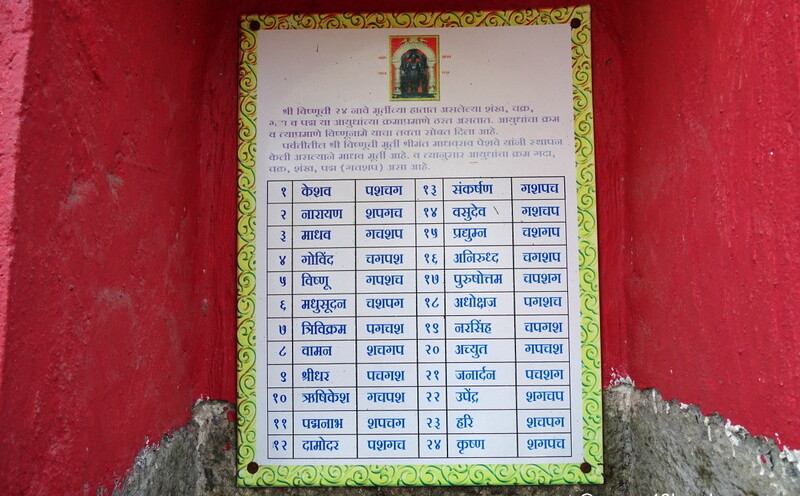 श्री विष्णूची २४ नावे मूर्तीच्या हातात असलेल्या शंख, चक्र,
गदा व पद्म या आयुधांच्या क्रमाप्रमाणे ठरत असतात. आयुधांचा क्रम
व त्याप्रमाणे विष्णूनामे याचा तक्ता सोबत दिला आहे.
पर्वतीतील श्री विष्णूची मूर्ती श्रीमंत माधवराव पेशवे यांनी स्थापन
केली असल्याने माधव मूर्ती आहे. व त्यानुसार आयुधांचा क्रम गदा,
चक्र, शंख, पद्म (गचशप) असा आहे.
१ केशव पशचग १३ संकर्षण गशपच
२ नारायण शपगच १४ वसुदेव गशचप
३ माधव गचशप १५ प्रद्युम्न चशगप
४ गोविंद चगपश १६ अनिरुध्द चगशप
५ विष्णू गपशच १७ पुरुषोत्तम चपशग
६ मधुसूदन चशपग १८ अधोक्षज पगशच
७ त्रिविक्रम पगचश १९ नरसिंह चपगश
८ वामन शचगप २० अच्युत गपचश
९ श्रीधर पचगश २१ जनार्दन पचशग
१० ऋषिकेश गचपश २२ उपेंद्र शगचप
११ पद्मनाभ शपचग २३ हरि शचपग
१२ दामोदर पशगच २४ कृष्ण शगपच